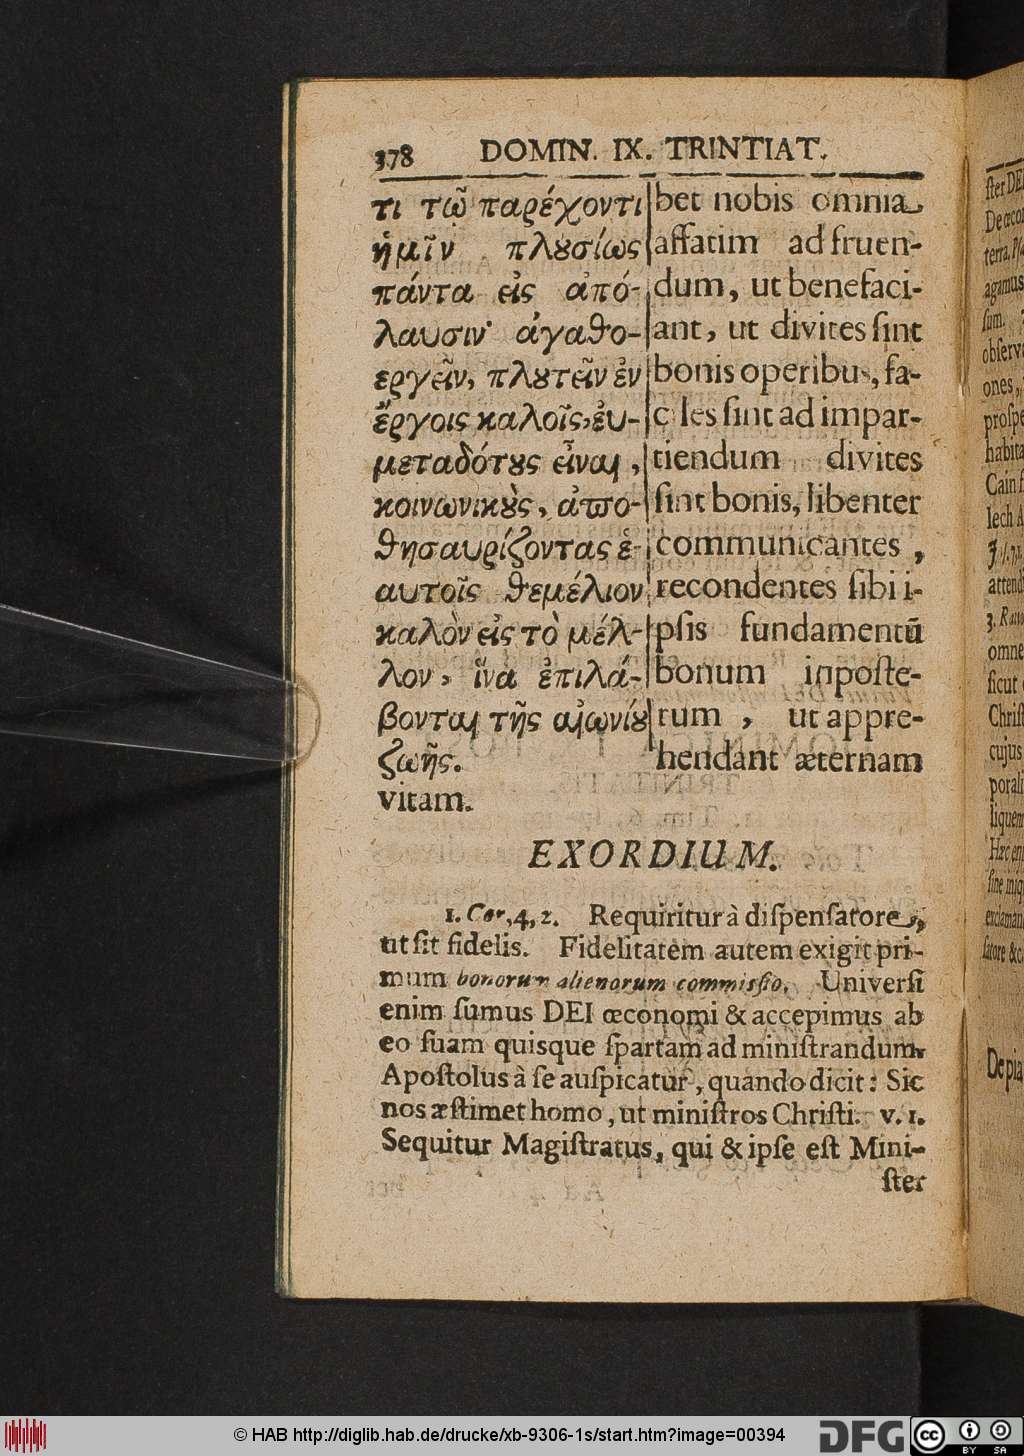 378 DOMIN. IX. TRINTIAT.
τι τῷ παρέχοντι
ἡμῖν πλȣσίως
πάντα εἰς ἀπό-
λαυσιν· ἀγαθο-
εργεῖν, πλȣτεῖν ἐν
ἔργοις καλοῖς, ἐυ-
μεταδότȣς εἶναι,
κοινωνικȣ̀ς, ἀϖο-
θησαυρίζοντας ἑ-
αυτοῖς θεμέλιον
καλὸν εἰς τὸ μέλ-
λον, ἵνα ἐπιλά-
βονται τῆς αἰωνίȣ
ζωῆς.
bet nobis omnia
affatim ad fruen-
dum, ut benefaci-
ant, ut divites ſint
bonis operibus, fa-
c les ſint ad impar-
tiendum divites
ſint bonis, libenter
communicantes,
recondentes ſibi i-
pſis fundamentū
bonum inpoſte-
rum, ut appre-
hendant æternam
vitam.
EXORDIUM.
1. Cor, 4, 2. Requiritur à diſpenſatore,
ut ſit fidelis. Fidelitatem autem exigit pri-
mum bonorum alienorum commiſſio. Univerſi
enim ſumus DEI œconomi & accepimus ab
eo ſuam quisque ſpartam ad miniſtrandum
Apoſtolus à ſe auſpicatur, quando dicit: Sic
nos æſtimet homo, ut miniſtros Chriſti. v. 1.
Sequitur Magiſtratus, qui & ipſe eſt Mini-
ſter
ſter DEI
terra, Pſ
agamus
ſum.
obſerva
ones,
proſpe
habita
Cain f
lech A
attend
3. Ratio
omne
ſicut
Chriſt
cujus
porali
liquem
Hæc eni
ſine iniq
exclaman
ſatore &c
De pia
© HAB http://diglib.hab.de/drucke/xb-9306-1s/start.htm?image=00394
DFG
cc
BY SA